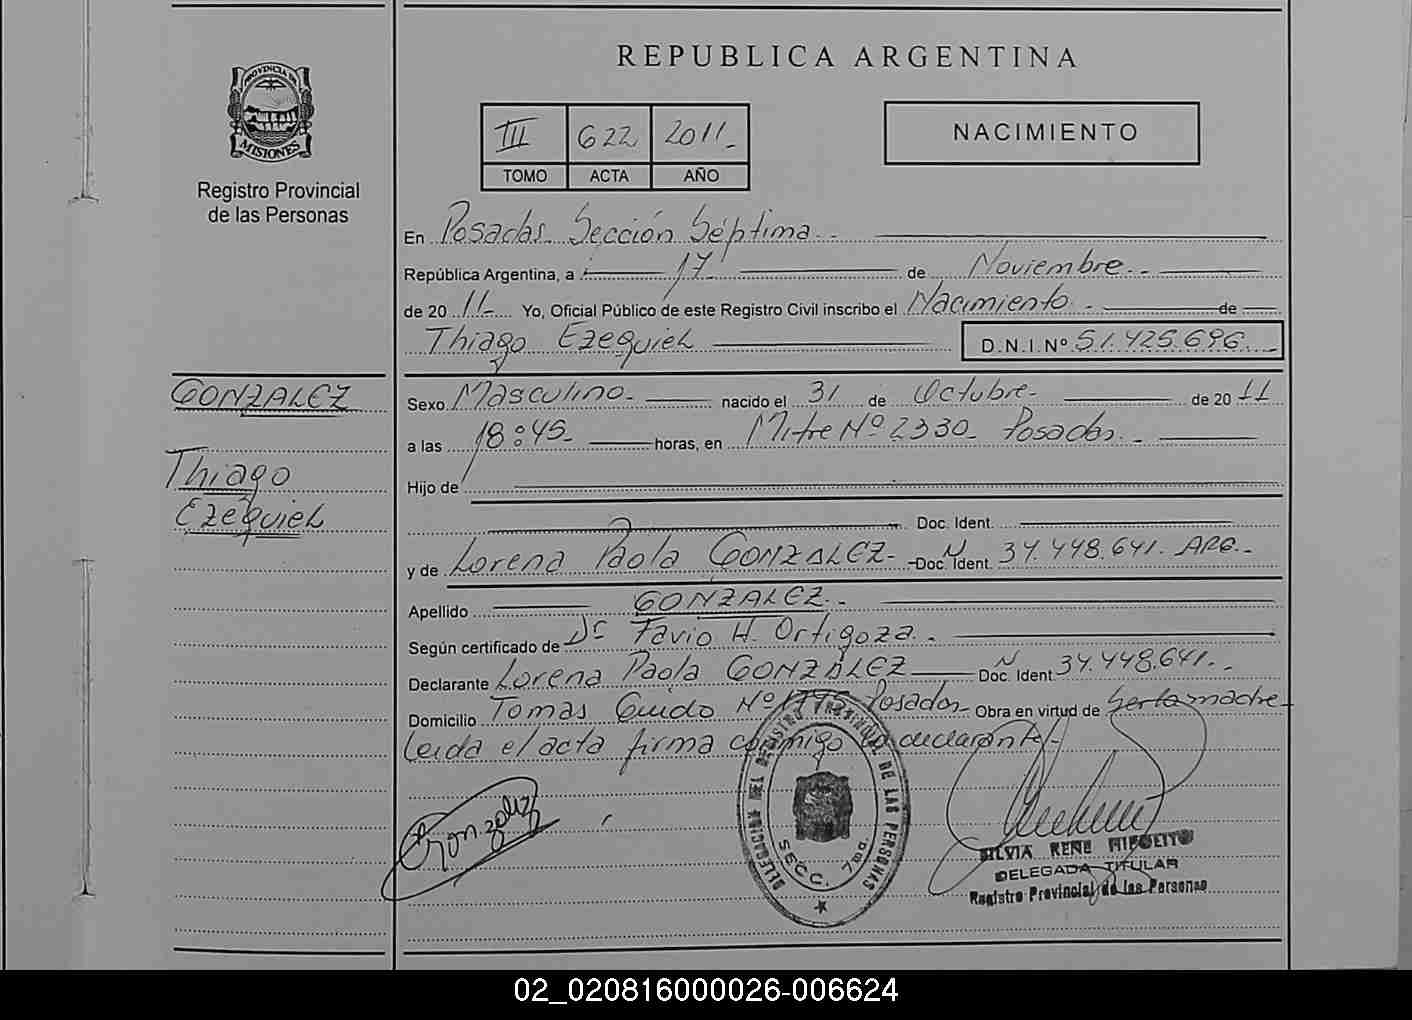 REPUBLICA ARGENTINA
PROVINCIA DE
MISIONES
Registro Provincial
de las Personas
III 622 2011_
TOMO ACTA AÑO
NACIMIENTO
En Posadas_ Sección Séptima.-
República Argentina, a 17 de Noviembre.-
de 20 11_ Yo, Oficial Público de este Registro Civil inscribo el Nacimiento.- de
Thiago Ezequiel D.N.I.Nº 51.425.696
GONZALEZ
Thiago
Ezequiel
Sexo Masculino- nacido el 31 de Octubre- de 20 11
a las 18:45- horas, en Mitre Nº 2330- Posadas.-
Hijo de
Doc. Ident.
y de Lorena Paola GONZALEZ- Doc. Ident. 34.448.641. ARG.-
Apellido GONZALEZ.-
Según certificado de Dr Favio H. Ortigoza.-
Declarante Lorena Paola GONZALEZ Doc. Ident. 34.448.641.-
Domicilio Tomas Guido Nº Posadas- Obra en virtud de Ser la madre-
Leida el acta firma conmigo la declarante.-
Gonzalez
DELEGACION DEL REGISTRO PROVINCIAL DE LAS PERSONAS
SECC. 7ma.
SILVIA RENE HIPOLITO
DELEGADA TITULAR
Registro Provincial de las Personas
02_020816000026-006624